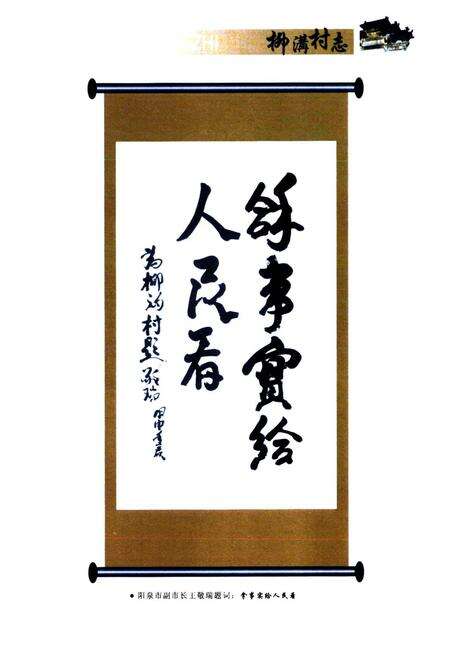 柳溝村志
拿事實給
人民看
为柳沟村题 敬瑞 甲申
● 阳泉市副市长王敬瑞题词：拿事实给人民看